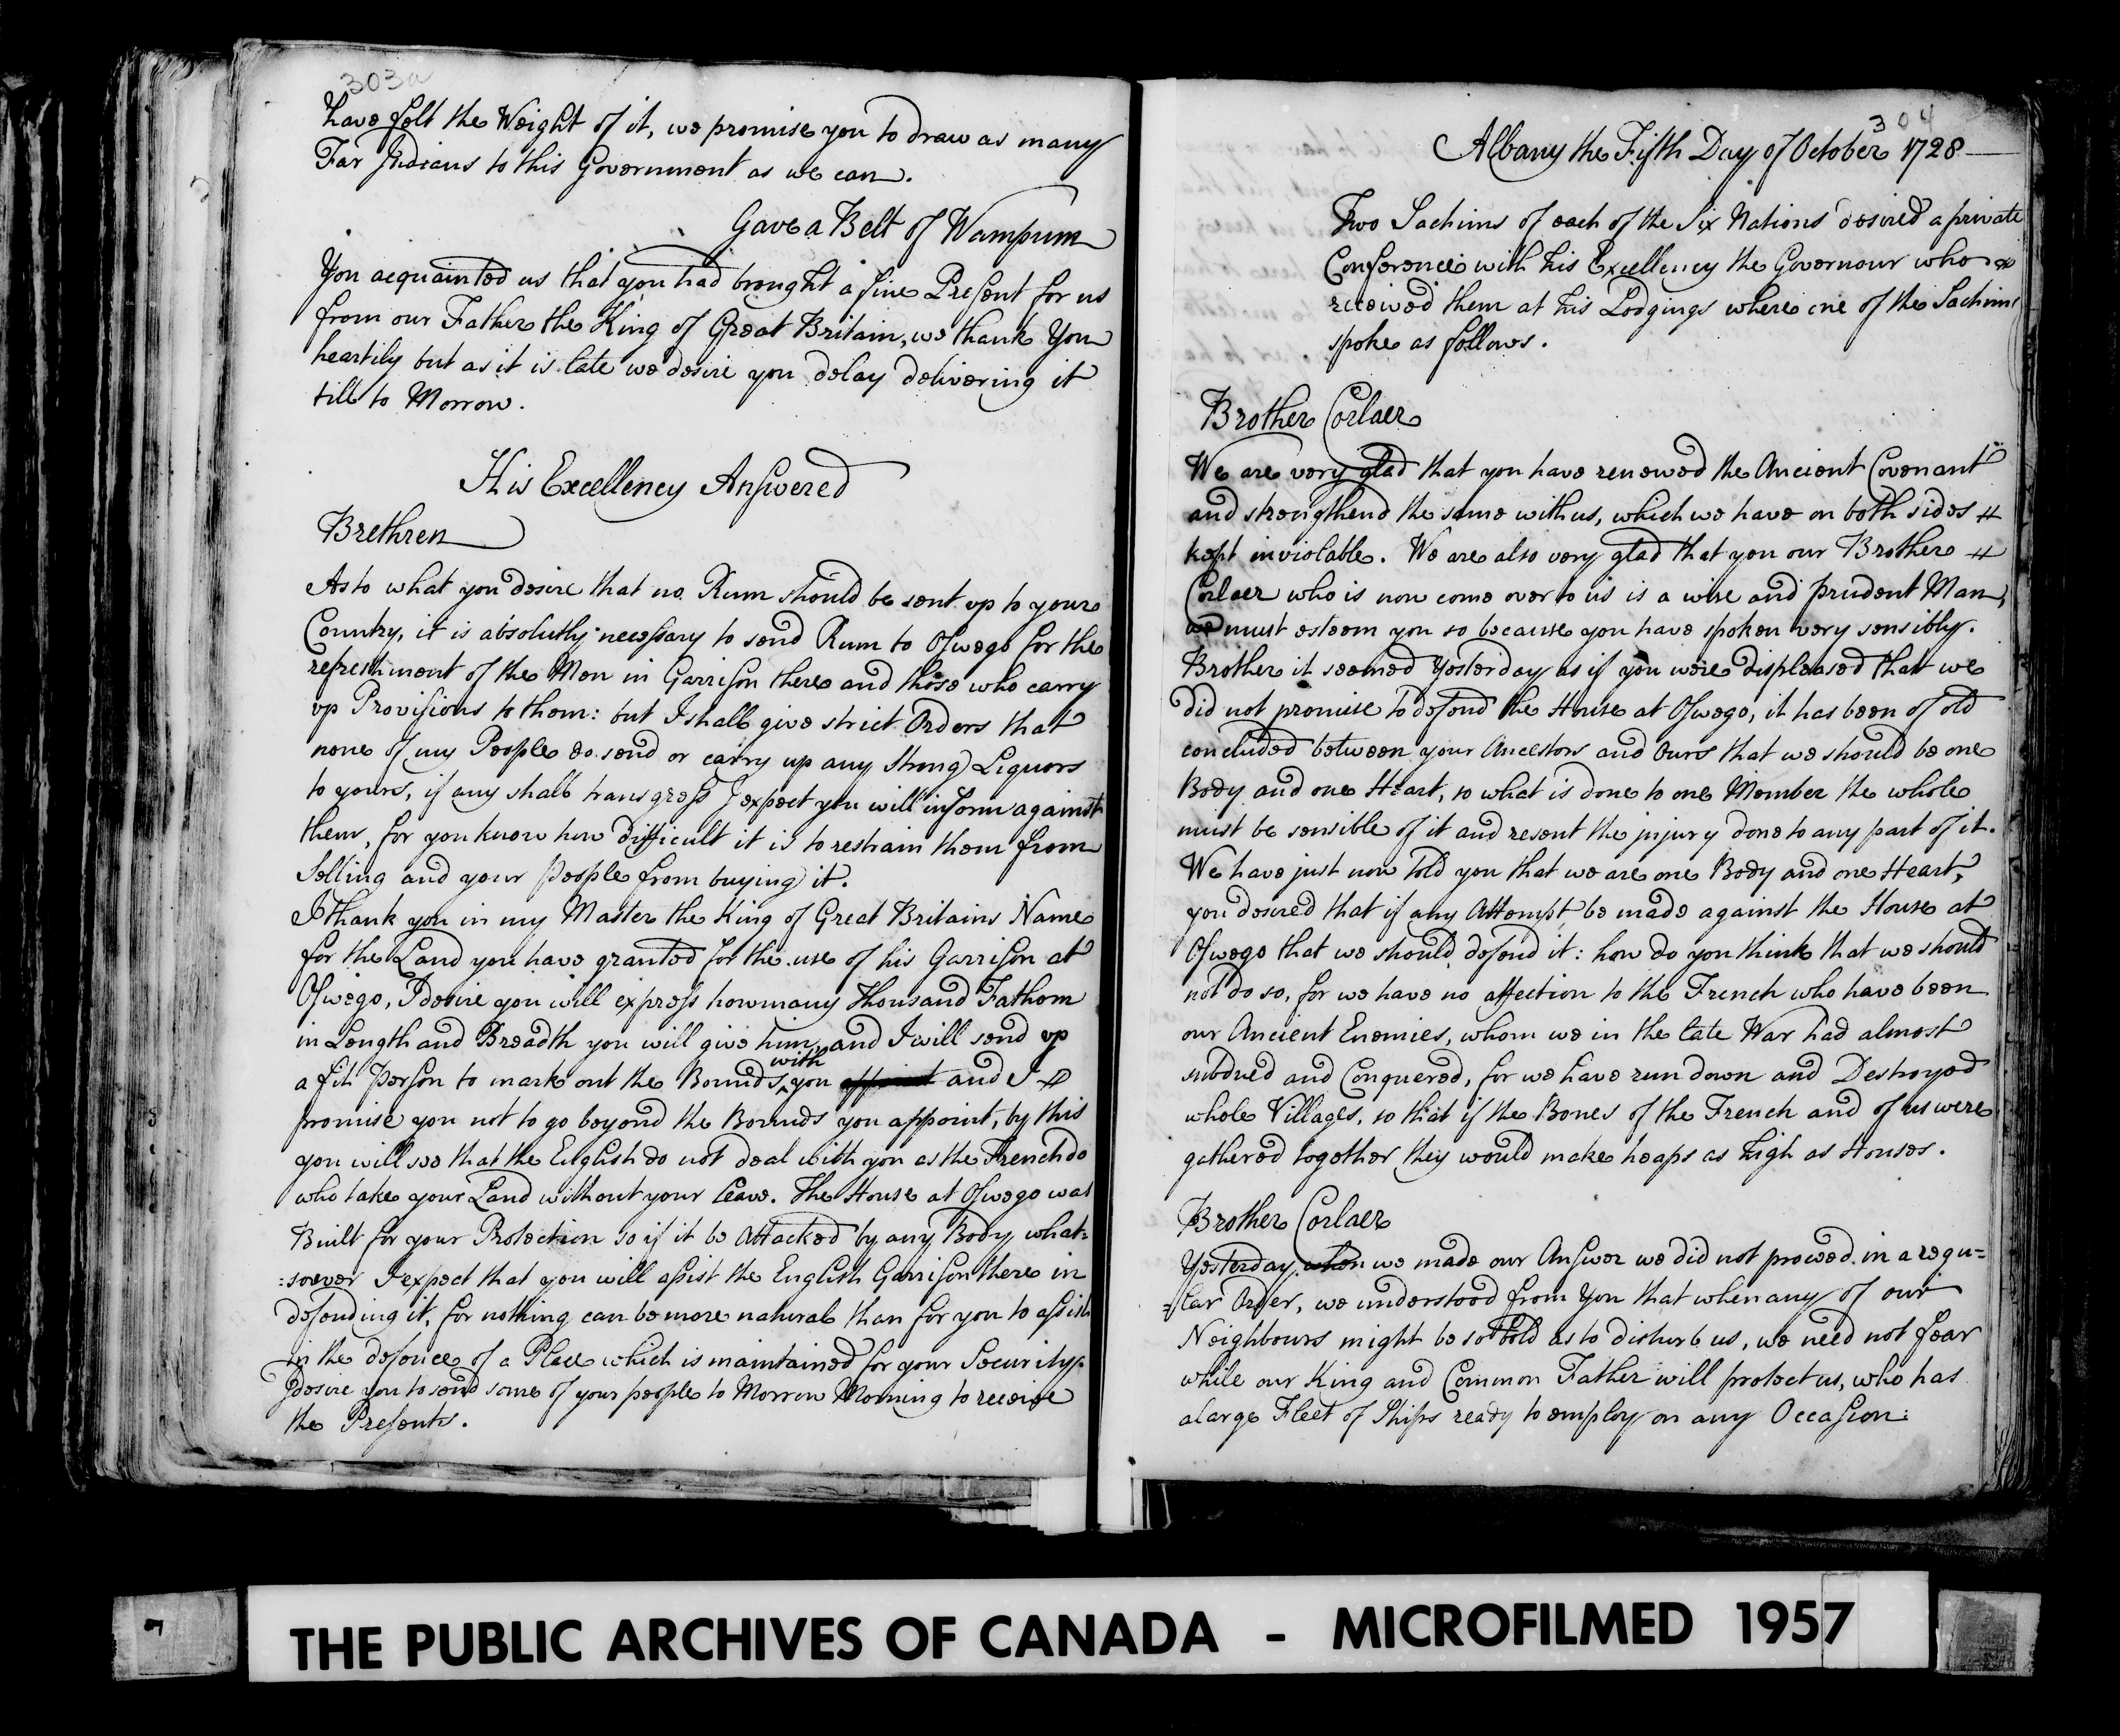 303a
have felt the Weight of it, we promise you to draw as many
Far Indians to this Government as we can.
Gave a Belt of Wampum
You acquainted us that you had brought a fine Present for us
from our Father the King of Great Britain, we thank You
heartily but as it is late we desire you delay delivering it
till to Morrow.
His Excellency Answered
Brethren
As to what you desire that no Rum should be sent up to your
Country, it is absolutly necessary to send Rum to Oswego for the
refreshment of the Men in Garrison there and those who carry
up Provisions to them: but I shall give strict Orders that
none of my People do send or carry up any strong Liquors
to yours, if any shall transgress I expect you will inform against
them, for you know how difficult it is to restrain them from
Selling and your People from buying it.
I thank you in my Master the King of Great Britains Name
for the Land you have granted for the use of his Garrison at
Oswego, I desire you will express how many thousand Fathom
in Length and Breadth you will give him, and I will send up
a fit Person to mark out the Bounds with you appoint and I
promise you not to go beyond the Bounds you appoint, by this
you will see that the English do not deal with you as the French do
who take your Land without your leave. The House at Oswego was
Built for your Protection so if it be Attacked by any Body what=
=soever I expect that you will assist the English Garrison there in
defending it, for nothing can be more natural than for you to assist
in the defence of a Place which is maintained for your Security.
I desire you to send some of your people to Morrow Morning to receive
the Presents.
304
Albany the Fifth Day of October 1728
Two Sachims of each of the Six Nations desired a private
Conference with his Excellency the Governour who
received them at his Lodgings where one of the Sachims
spoke as follows.
Brother Corlaer
We are very glad that you have renewed the Ancient Covenant
and strengthend the same with us, which we have on both sides
kept inviolable. We are also very glad that you our Brother
Corlaer who is now come over to us is a wise and prudent Man,
we must esteem you so because you have spoken very sensibly.
Brother it seemed Yesterday as if you were displeased that we
did not promise to defend the House at Oswego, it has been of old
concluded between your Ancestors and Ours that we should be one
Body and one Heart, so what is done to one Member the whole
must be sensible of it and resent the injury done to any part of it.
We have just now told you that we are one Body and one Heart,
you desired that if any Attempt be made against the House at
Oswego that we should defend it: how do you think that we should
not do so, for we have no affection to the French who have been
our Ancient Enemies, whom we in the late War had almost
subdued and Conquered, for we have run down and Destroyed
whole Villages, so that if the Bones of the French and of us were
gathered together they would make heaps as high as Houses.
Brother Corlaer
Yesterday when we made our Answer we did not proceed in a regu=
=lar Order, we understood from You that when any of our
Neighbours might be so bold as to disturb us, we need not fear
while our King and Common Father will protect us, who has
a large Fleet of Ships ready to employ on any Occasion:
THE PUBLIC ARCHIVES OF CANADA - MICROFILMED 1957